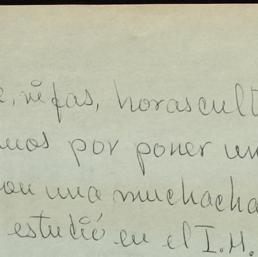 rifas, horas cult
por poner un
una muchacha
estudió en el I.H.